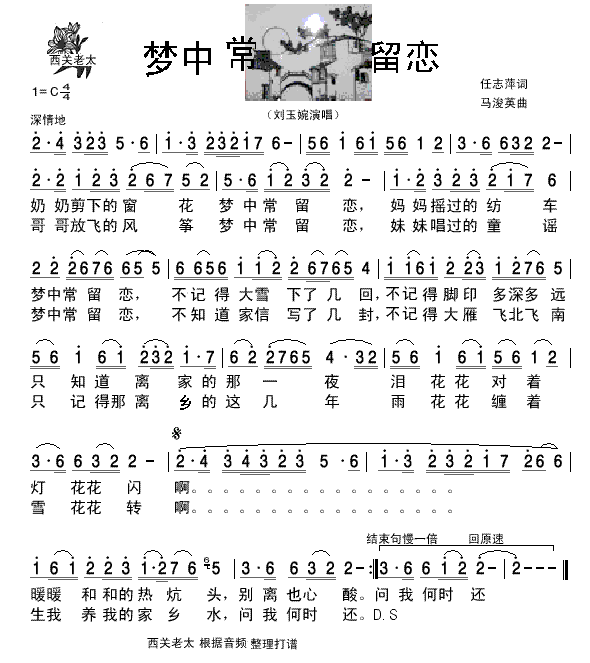 西关老太
梦中常留恋
1=C 4/4
任志萍词
马浚英曲
(刘玉婉演唱)
深情地
2·4 323 5·6 | 1·3 232176– | 56 1 6156 12 | 3·6 632 2– |
2·2 123 267 52 | 5·6 1232 2– | 1·2 323 217 6 |
奶奶剪下的窗 花 梦中常留 恋, 妈妈摇过的纺 车
哥哥放飞的风 筝 梦中常留 恋, 妹妹唱过的童 谣
2 2 2676 655 | 6 656 112 26765 4 | 1161 223 12765 |
梦中常留 恋, 不记得大雪 下了几 回,不记得脚印 多深多 远
梦中常留 恋, 不知道家信 写了几 封,不记得大雁 飞北飞 南
56 1 61 232 1·7 | 62 2765 4·32 | 56 1 61 56 12 |
只 知道 离 家的那 一 夜 泪 花花 对着
只 记得那离 乡的这 几 年 雨 花花 缠着
3·6 632 2– | 2·4 34323 5·6 | 1·3 23217 266 |
灯 花花 闪 啊。。。。。。。。。。。。。。。。。。
雪 花花 转 啊。。。。。。。。。。。。。。。。。。
结束句慢一倍 回原速
161 223 1·276 5 | 3·6 6332 2–:| 3·6 6122– | 2– –‖
暖暖 和和的热 炕 头,别离也心 酸。问我何时 还
生我 养我的家 乡 水,问我何时 还。D.S
西关老太 根据音频 整理打谱